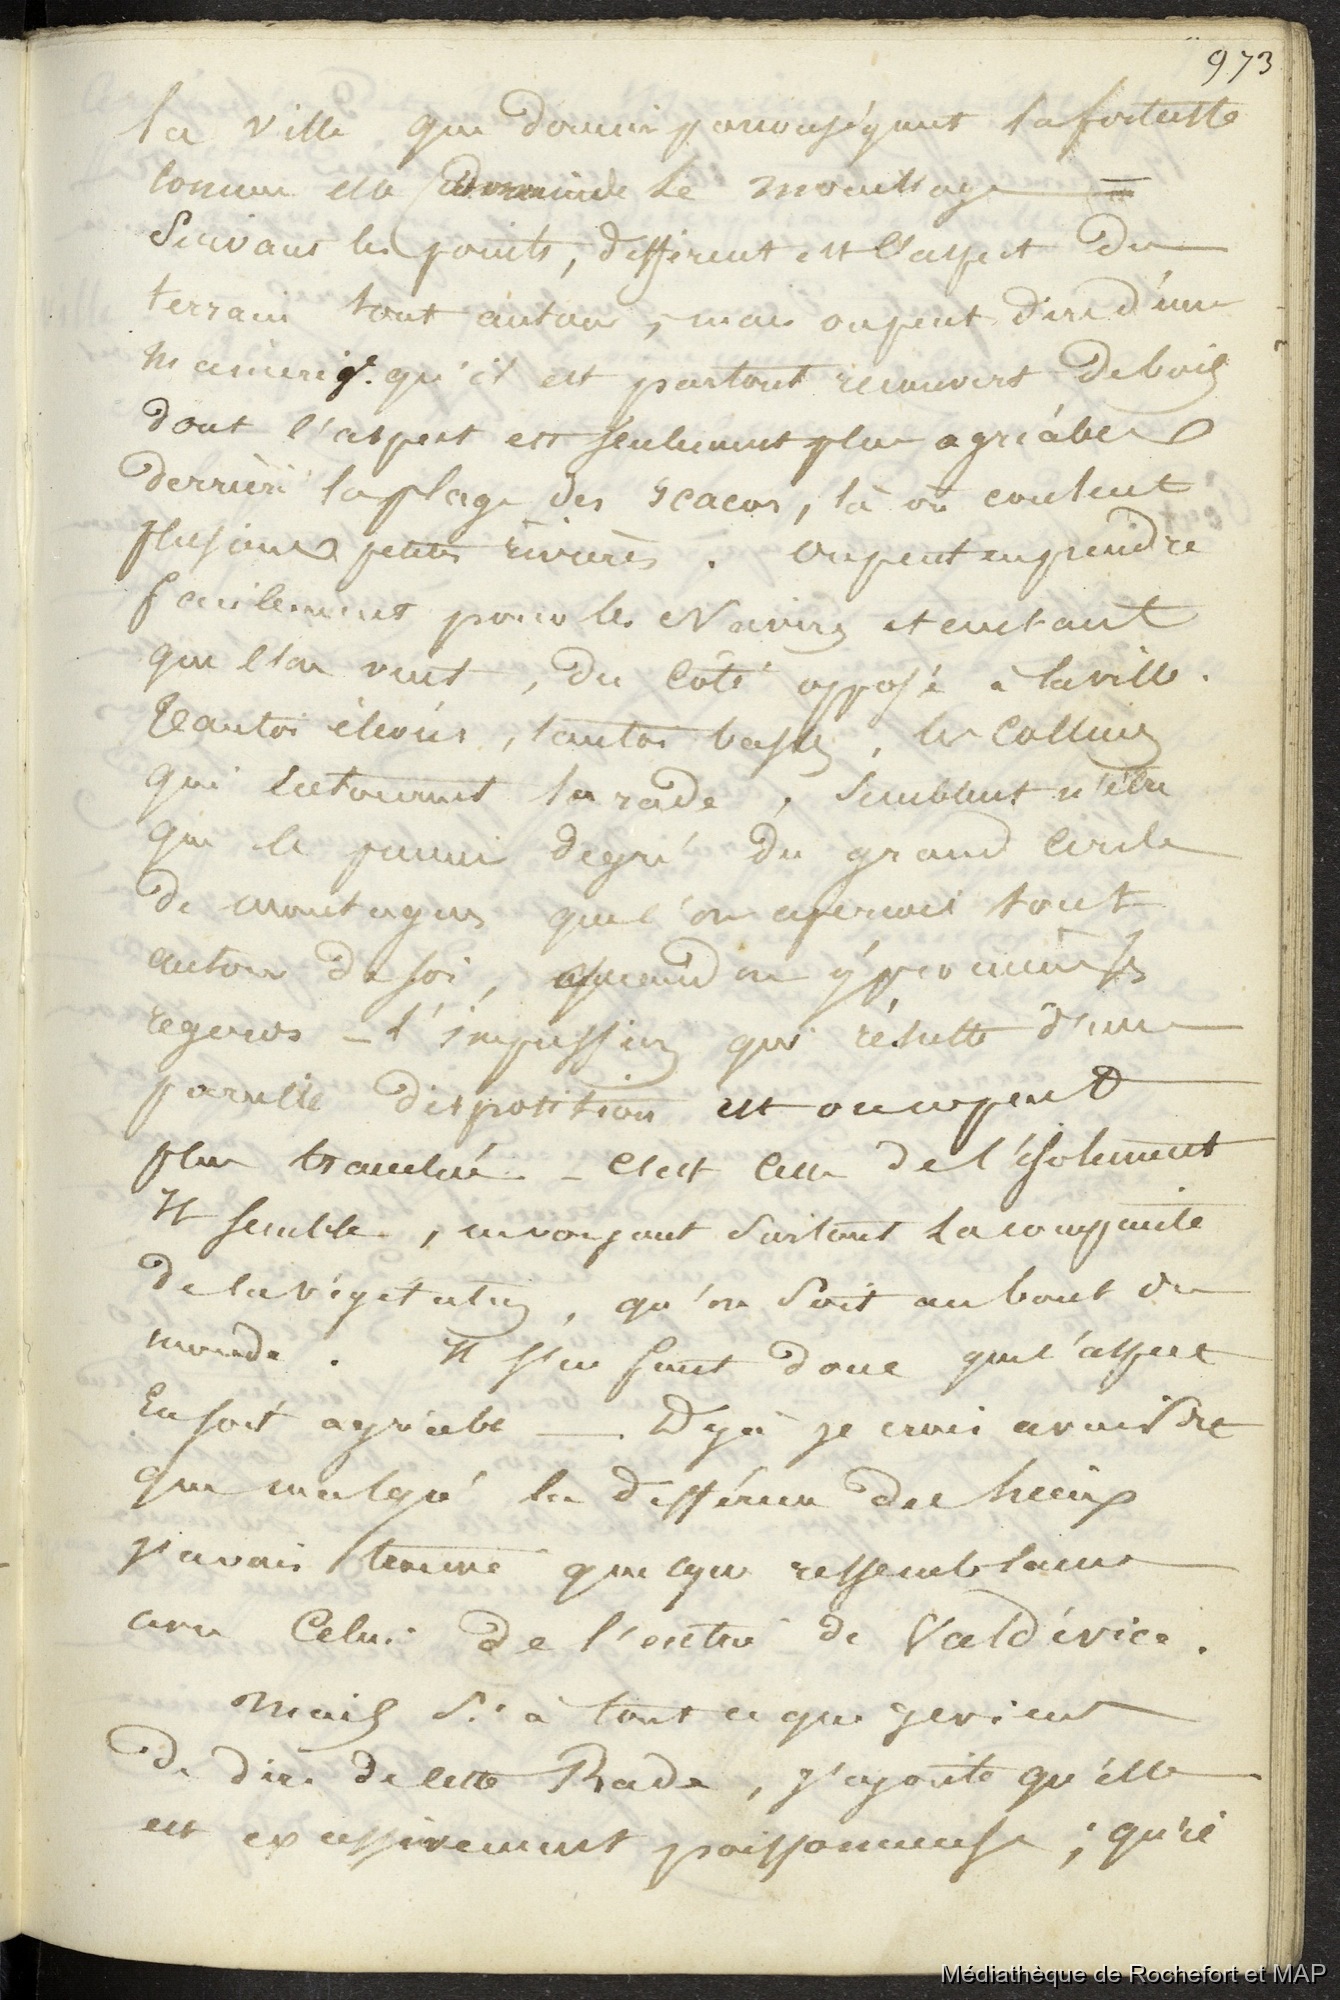 973
la ville que domine par conséquent la forteresse
comme elle domine le mouillage
Suivant les points, différent est l'aspect du
terrain tout autour, mais on peut dire d'une
manière gle. qu'il est partout recouvert de bois
dont l'aspect est seulement plus agréable
derrière la plage des Icacos, là où coulent
plusieurs petites rivières. On peut en prendre
facilement pour les Navires et autant
que l'on veut, du Côté opposé à la ville.
Tantôt élevées, tantôt basses, les Collines
qui entourent la rade, semblent n'être
que le premier degré du grand Cercle
de montagnes que l'on aperçoit tout
autour de soi, quand on y promène ses
regards – l'impression qui résulte d'une
pareille disposition est on ne peut
plus tranchée – C'est celle de l'isolement
Il semble, en voyant surtout la
de la végétation, qu'on soit au bout du
monde. Il s'en faut donc que l'aspect
en soit agréable — Déjà je crois avoir dit
que malgré la différence des lieux
j'avais trouvé quelque ressemblance
avec Celui de l'entrée de Valdivia.
Mais si à tout ce que je viens
de dire de cette Rade, j'ajoute qu'elle
est excessivement poissonneuse ; qu'il
Médiathèque de Rochefort et MAP